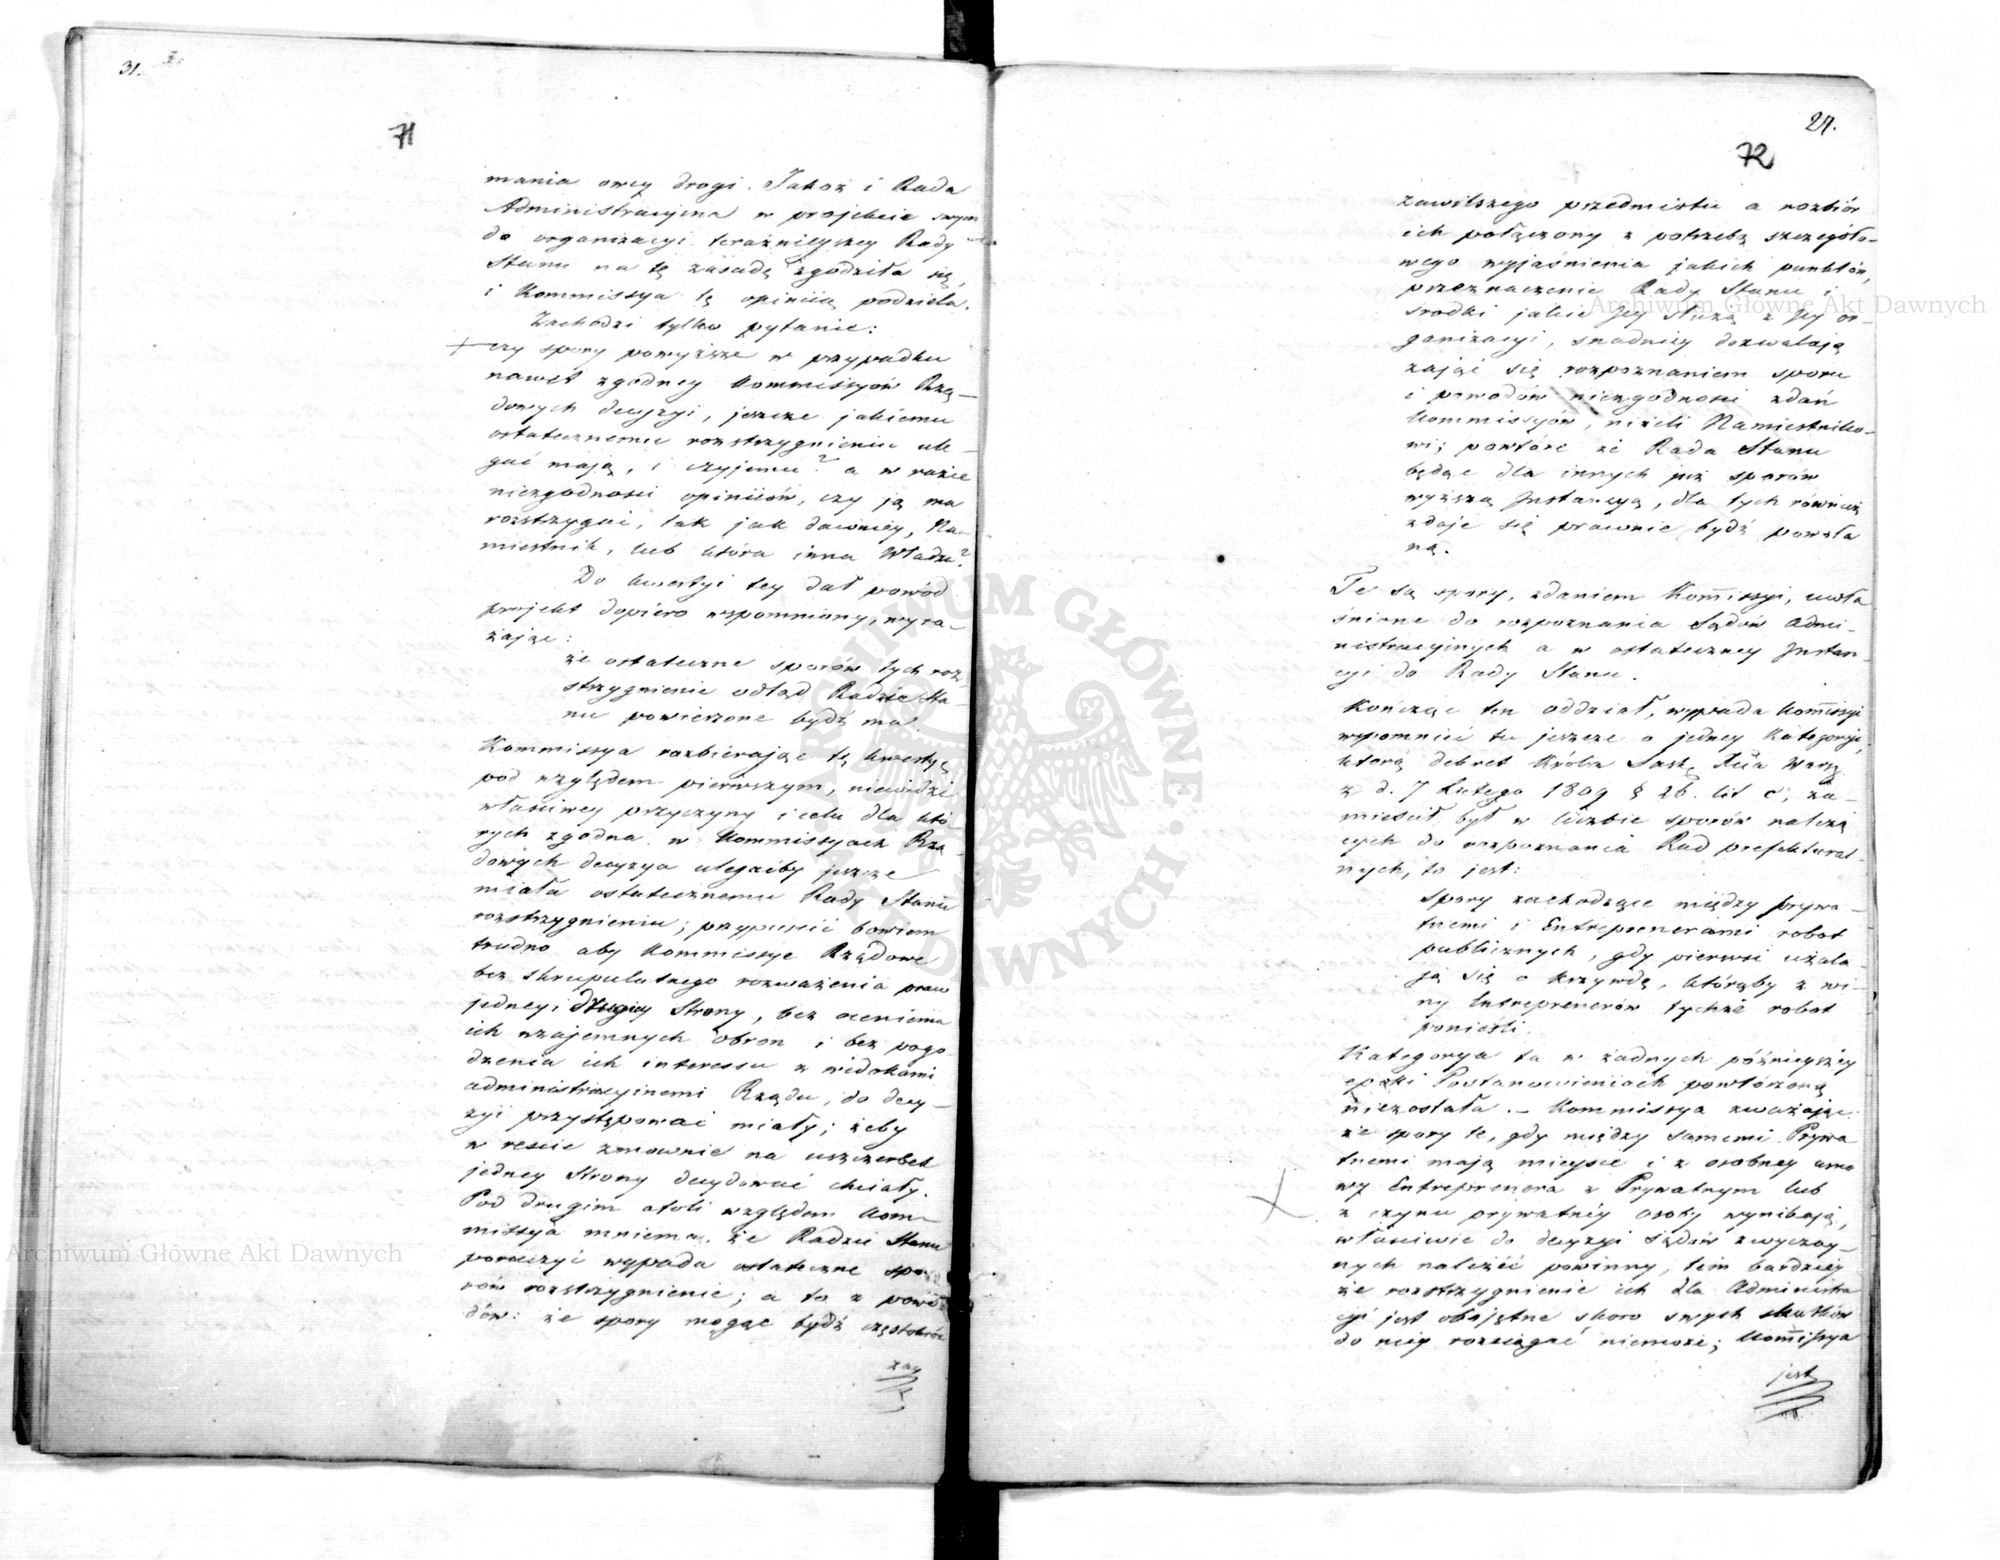 31.
71
mania owey drogi. Jakoż i Rada
Administracyina w projekcie swym
do organizacyi teraźnieyszey Rady
Stanu na tę zasadę zgodziła się,
i Kommissya tę opiniią podziela.
Zachodzi tylko pytanie:
czy spory powyższe w przypadku
nawet zgodney Kommissyów Rzą-
dowych decyzyi, jeszcze jakiemu
ostatecznemu rozstrzygnieniu ule-
gać mają, i czyjemu? a w razie
niezgodności opiniiów, czy ją ma
rozstrzygać, tak jak dawniey, Na-
miestnik, lub która inna Władza?
Do kwestyi tey dał powód
projekt dopiero wspomniony, wyra-
żając:
że ostateczne sporów tych roz-
strzygnienie odtąd Radzie Sta-
nu powierzone bydź ma.
Kommissya rozbierając tę kwestyą
pod względem pierwszym, niewidzi
właściwey przyczyny i celu dla któ-
rych zgodna w Kommissyach Rzą-
dowych decyzya ulegaćby jeszcze
miała ostatecznemu Rady Stanu
rozstrzygnieniu; przypuścić bowiem
trudno aby Kommissye Rządowe
bez skrupulatnego rozważenia praw
jedney i drugiey Strony, bez ocenienia
ich wzajemnych obron i bez pogo-
dzenia ich interessu z widokami
administracyinemi Rządu, do decy-
zyi przystępować miały; żeby
w reście zmownie na uszczerbek
jedney Strony decydować chciały.
Pod drugim atoli względem Kom-
missya mniema, że Radzie Stanu
poruczyć wypada ostateczne spo-
rów rozstrzygnienie; a to z powo-
dów: że spory mogąc bydź częstokroć
zaw
27.
72
zawilszego przedmiotu a rozbiór
ich połączony z potrzebą szczegóło-
wego wyjaśnienia jakich punktów,
przeznaczenie Rady Stanu i
srodki jakie Jey służą z Jey or-
ganizacyi, snadniey dozwalają
zająć się rozpoznaniem sporu
i powodów niezgodności zdań
Kommissyów, niżeli Namiestniko-
wi; powtóre że Rada Stanu
będąc dla innych już sporów
wyższą Instancyą, dla tych również
zdaje się prawnie bydź powoła
ną.
Te są spory, zdaniem Kommissyi, wła
ściwne do rozpoznania Sądów Admi-
nistracyinych a w ostateczney Instan-
cyi do Rady Stanu.
Kończąc ten oddział, wypada Kommissyi
wspomnieć tu jeszcze o jedney Kategoryi,
którą dekret Króla Sask: Xcia Warsz:
z d. 7 Lutego 1809 § 26. lit c, za-
mieścił był w liczbie sporów należą
cych do rozpoznania Rad prefektural-
nych, to jest:
spory zachodzące między prywa-
tnemi i Entreprenerami robot
publicznych, gdy pierwsi użala-
ją się o krzywdę, którąby z wi-
ny Entreprenerów tychże robot
ponieśli.
Kategorya ta w żadnych późnieyszey
epoki Postanowieniach powtórzoną
niezostała. – Kommissya zważając
że spory te, gdy między samemi Prywa
tnemi mają mieysce i z osobney umo
wy Entreprenera z Prywatnym lub
z czynu prywatnéy osoby wynikają,
właściwie do decyzyi sądów zwyczay-
nych należéć powinny, tém bardziey
że rozstrzygnienie ich dla Administra
cyi jest obojętne skoro swych skutków
do niey rozciągać niemoże; Kommissya
jest
Archiwum Główne Akt Dawnych
Archiwum Główne Akt Dawnych
ARCHIWUM GŁÓWNE AKT DAWNYCH